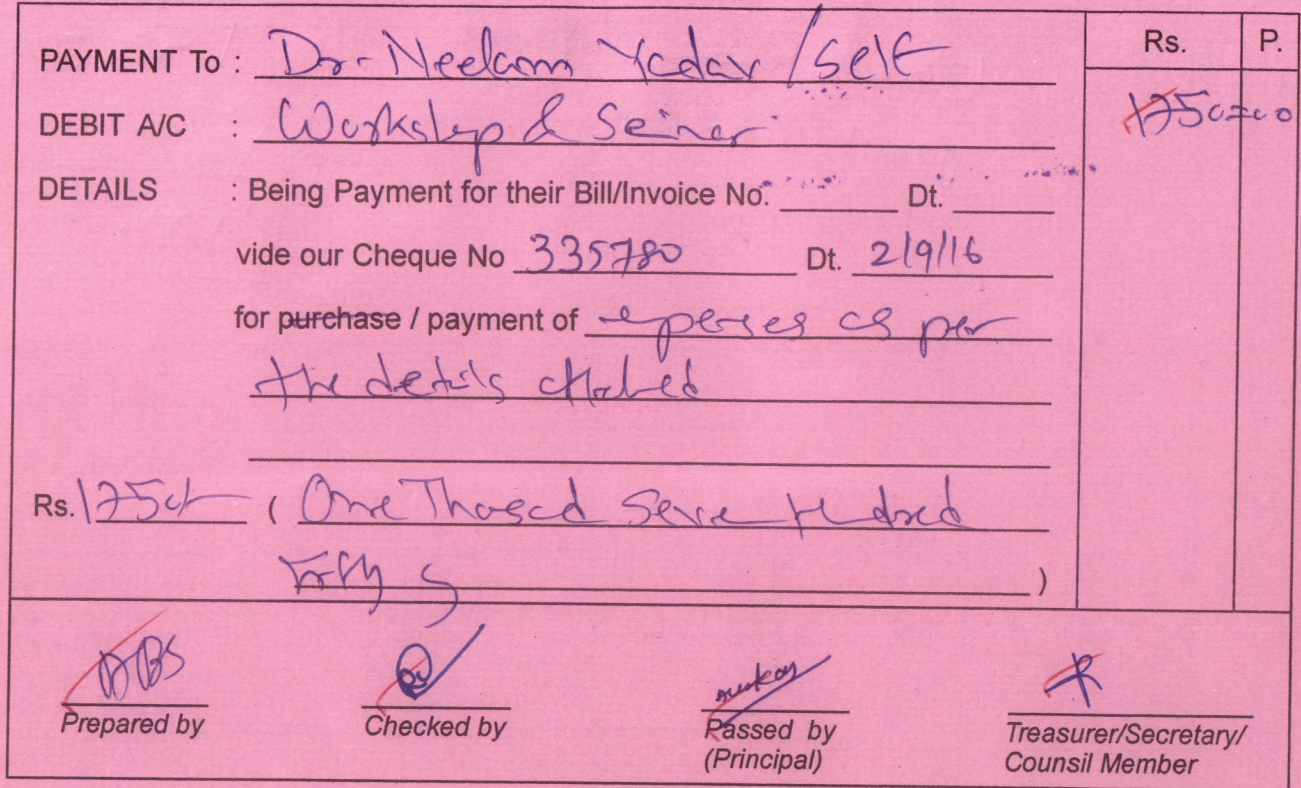 Rs. P.
PAYMENT To : Dr. Neelam Yadav / Self
1750=00
DEBIT A/C : Workshop & Seminar
DETAILS : Being Payment for their Bill/Invoice No. Dt.
vide our Cheque No 335780 Dt. 2/9/16
for purchase / payment of expenses as per
the details attached
Rs. 1750/- ( One Thousand Seven Hundred
Fifty )
Prepared by Checked by Passed by Treasurer/Secretary/
(Principal) Counsil Member